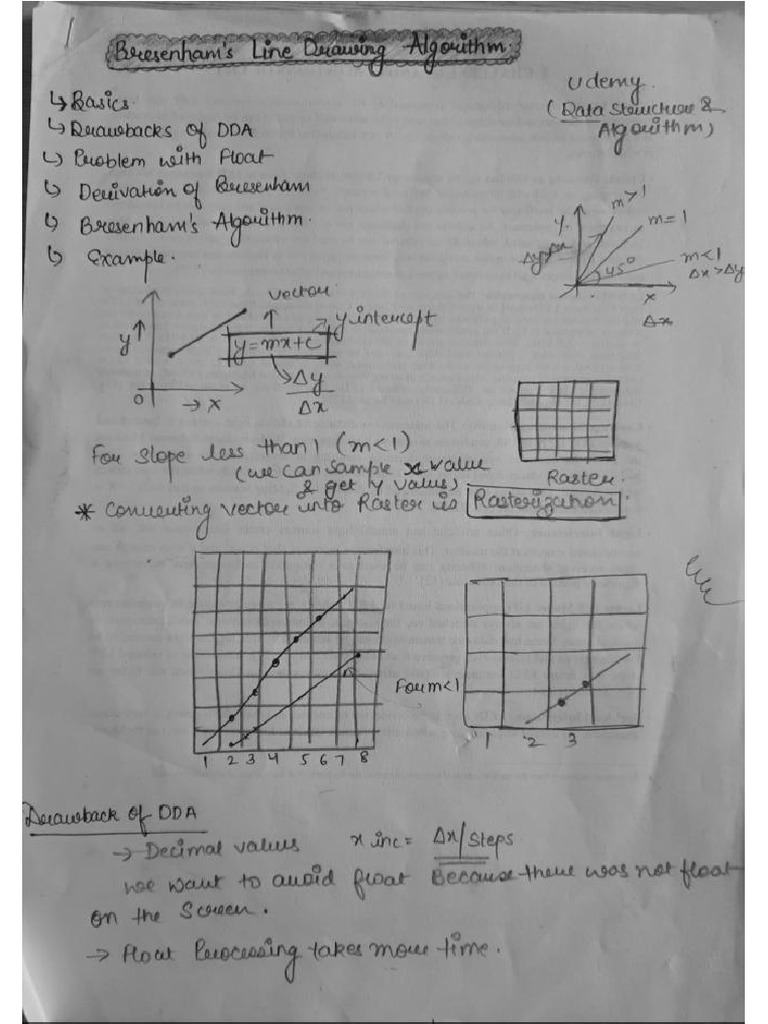 1
Bresenham's Line Drawing Algorithm.
Udemy.
(Data Structure &
Algorithm)
↳ Basics.
↳ Drawbacks of DDA
↳ Problem with Float
↳ Derivation of Bresenham
↳ Bresenham's Algorithm.
↳ Example.
m>1
y
m=1
m<1
45°
Δx>Δy
x
Δx
vector
y intercept
y↑
y=mx+c
Δy
Δx
0
→ x
For slope less than 1 (m<1)
(we can sample x value
& get y values)
Raster.
* Converting vector into Raster is Rasterization.
For m<1
1 2 3 4 5 6 7 8
1 2 3
Drawback of DDA
→ Decimal values x inc = Δx/Steps
we want to avoid float Because there was not float
on the Screen.
→ float Processing takes more time.